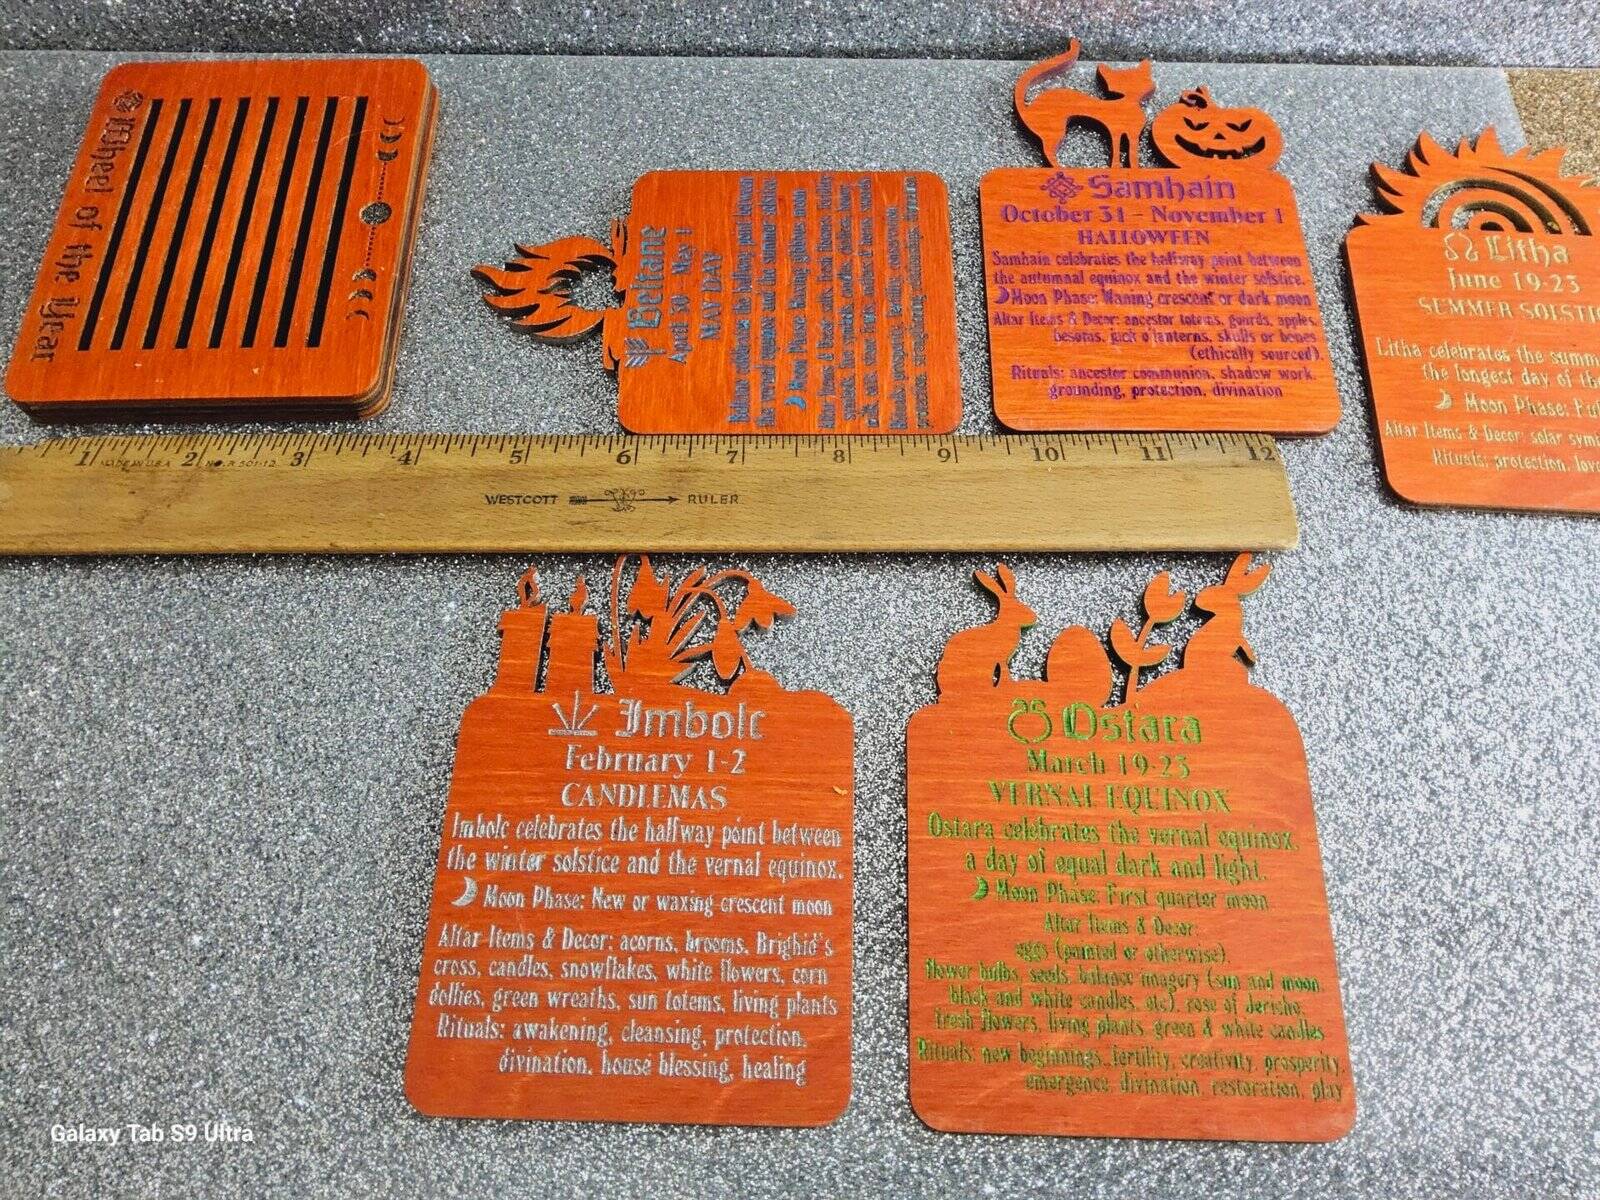 Wheel of the Year
Beltane
April 30 - May 1
MAY DAY
Beltane celebrates the halfway point between
the vernal equinox and the summer solstice.
Moon Phase: Waxing gibbous moon
Samhain
October 31 - November 1
HALLOWEEN
Samhain celebrates the halfway point between
the autumnal equinox and the winter solstice.
Moon Phase: Waning crescent or dark moon
Altar Items & Decor: ancestor totems, gourds, apples,
besoms, jack o lanterns, skulls or bones
(ethically sourced).
Rituals: ancestor communion, shadow work,
grounding, protection, divination
Litha
June 19-23
SUMMER SOLSTIC
Litha celebrates the summ
the longest day of the
Moon Phase: Ful
Altar Items & Decor: solar symb
Rituals: protection, love
1 2 3 4 5 6 7 8 9 10 11 12
MADE IN U.S.A.
WESTCOTT RULER
Imbolc
February 1-2
CANDLEMAS
Imbolc celebrates the halfway point between
the winter solstice and the vernal equinox.
Moon Phase: New or waxing crescent moon
Altar Items & Decor: acorns, brooms, Brighid's
cross, candles, snowflakes, white flowers, corn
dollies, green wreaths, sun totems, living plants
Rituals: awakening, cleansing, protection,
divination, house blessing, healing
Ostara
March 19-23
VERNAL EQUINOX
Ostara celebrates the vernal equinox,
a day of equal dark and light.
Moon Phase: First quarter moon
Altar Items & Decor:
eggs (painted or otherwise),
flower bulbs, seeds, balance imagery (sun and moon,
black and white candles, etc), rose of Jericho,
fresh flowers, living plants, green & white candles
Rituals: new beginnings, fertility, creativity, prosperity,
emergence, divination, restoration, play
Galaxy Tab S9 Ultra